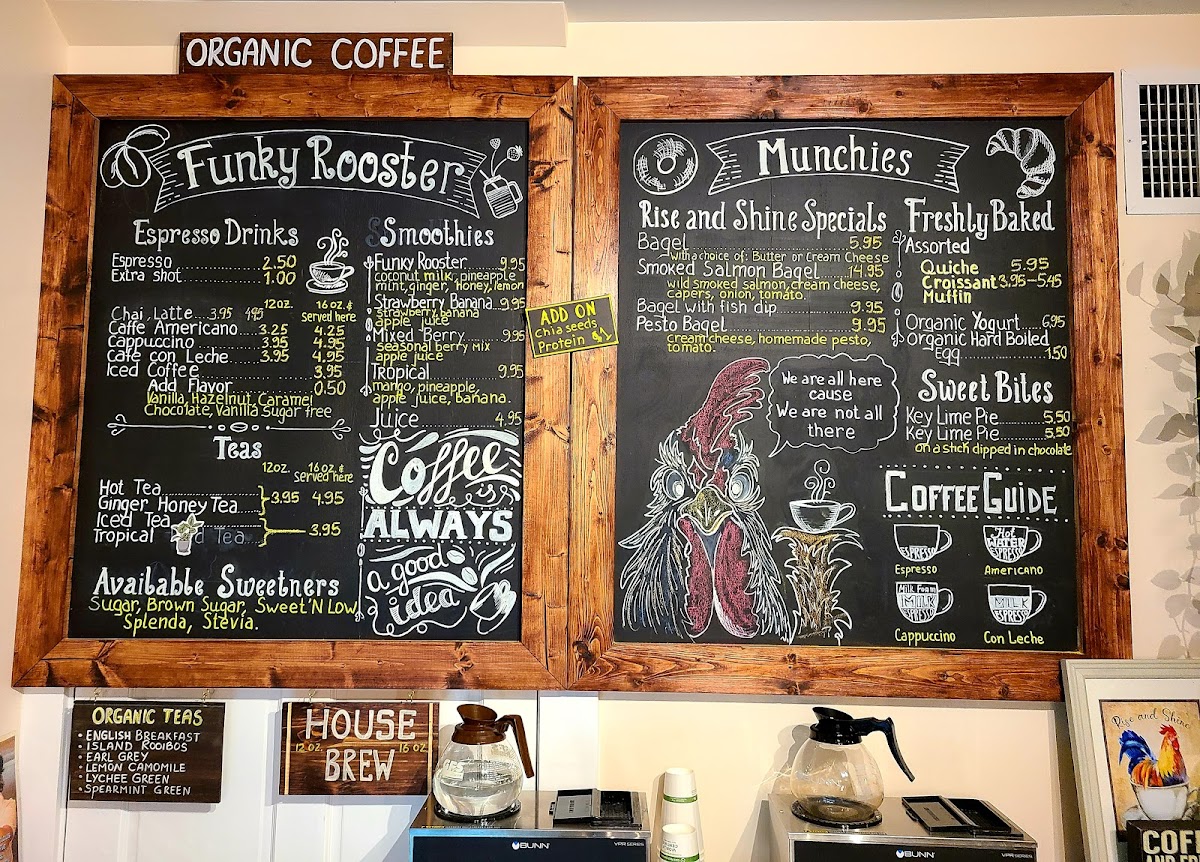 ORGANIC COFFEE
Funky Rooster
Espresso Drinks
Espresso 2.50
Extra shot 1.00
12oz. 16 oz. &
Served here
Chai Latte 3.95 4.95
Caffe Americano 3.25 4.25
Cappuccino 3.95 4.95
Cafe con Leche 3.95 4.95
Iced Coffee 3.95
Add Flavor 0.50
Vanilla, Hazelnut, Caramel
Chocolate, Vanilla Sugar free
Teas
12oz. 16 oz. &
Served here
Hot Tea
Ginger Honey Tea 3.95 4.95
Iced Tea
Tropical Tea 3.95
Available Sweetners
Sugar, Brown Sugar, Sweet'N Low,
Splenda, Stevia.
Smoothies
Funky Rooster 9.95
coconut milk, pineapple
mint, ginger, honey, lemon
Strawberry Banana 9.95
strawberry, banana
apple juice
Mixed Berry 9.95
seasonal berry mix
apple juice
Tropical 9.95
mango, pineapple,
apple juice, banana.
Juice 4.95
Coffee
is
ALWAYS
a good
idea
ADD ON
Chia seeds
Protein $1
Munchies
Rise and Shine Specials
Bagel 5.95
with a choice of: Butter or Cream Cheese
Smoked Salmon Bagel 14.95
wild smoked salmon, cream cheese,
capers, onion, tomato.
Bagel with fish dip 9.95
Pesto Bagel 9.95
cream cheese, homemade pesto,
tomato.
We are all here
cause
We are not all
there
Freshly Baked
Assorted
Quiche 5.95
Croissant 3.95-5.45
Muffin
Organic Yogurt 6.95
Organic Hard Boiled
Egg 1.50
Sweet Bites
Key Lime Pie 5.50
Key Lime Pie 5.50
on a stich dipped in chocolate
COFFEE GUIDE
ESPRESSO
Espresso
Hot
WATER
ESPRESSO
Americano
Milk Foam
MILK
ESPRESSO
Cappuccino
MILK
ESPRESSO
Con Leche
ORGANIC TEAS
• ENGLISH BREAKFAST
• ISLAND ROOIBOS
• EARL GREY
• LEMON CAMOMILE
• LYCHEE GREEN
• SPEARMINT GREEN
HOUSE
12 OZ. 16 OZ.
BREW
BUNN VPR SERIES
BUNN VPR SERIES
Rise and Shine